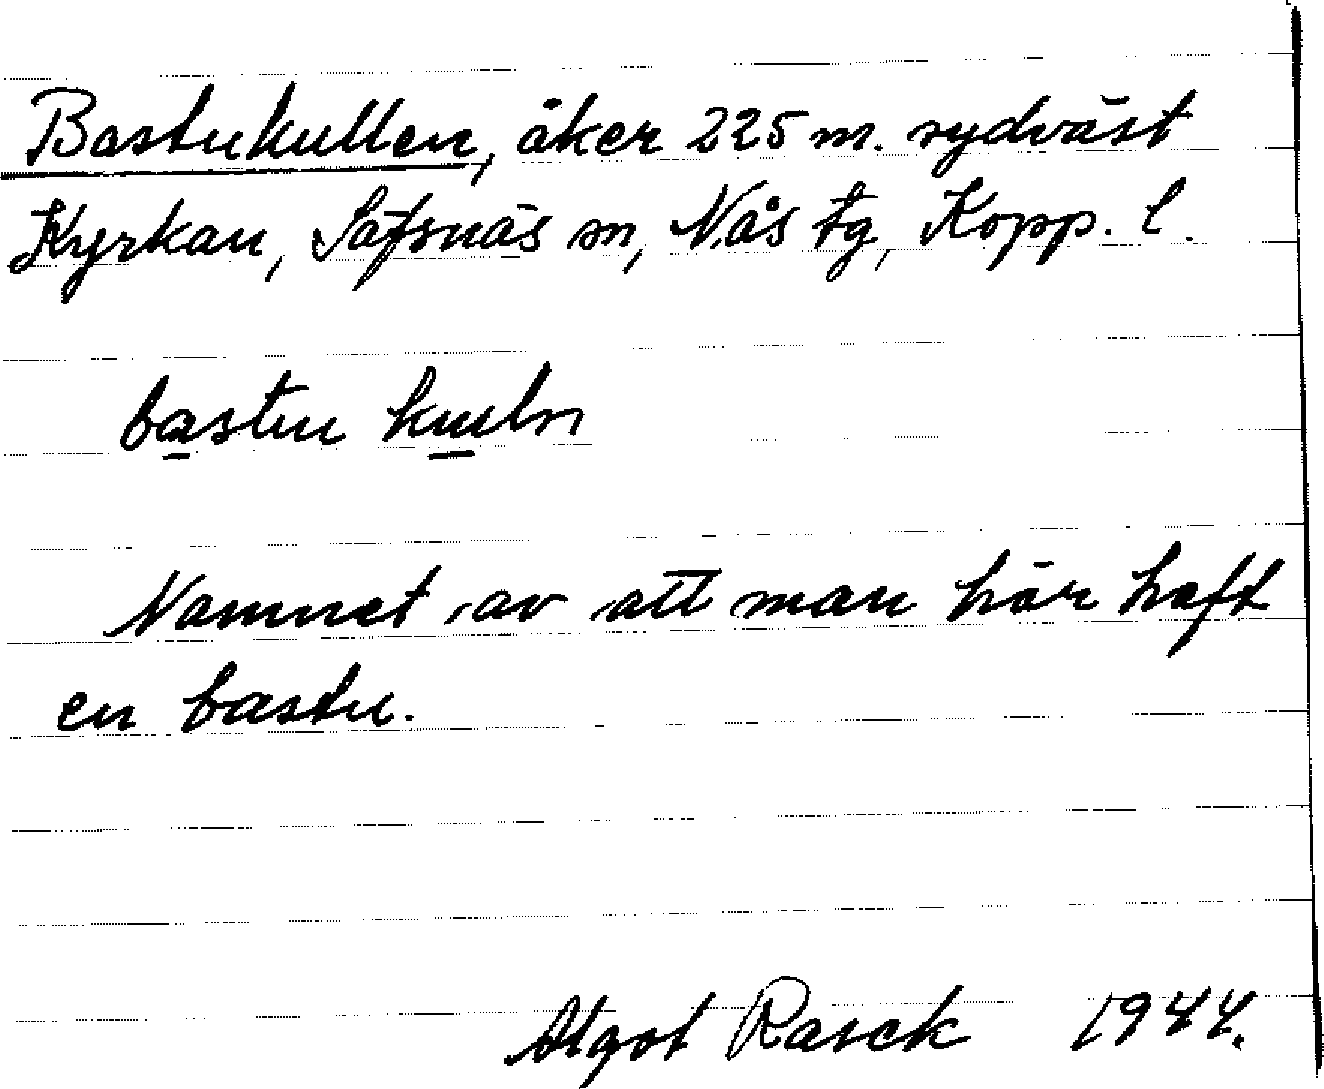 Bastukullen, åker 225 m. sydväst
Kyrkan, Säfsnäs sn, Nås tg, Kopp. l.
bastu kuuln
Namnet av att man här haft
en bastu.
Algot Rasck 1944.